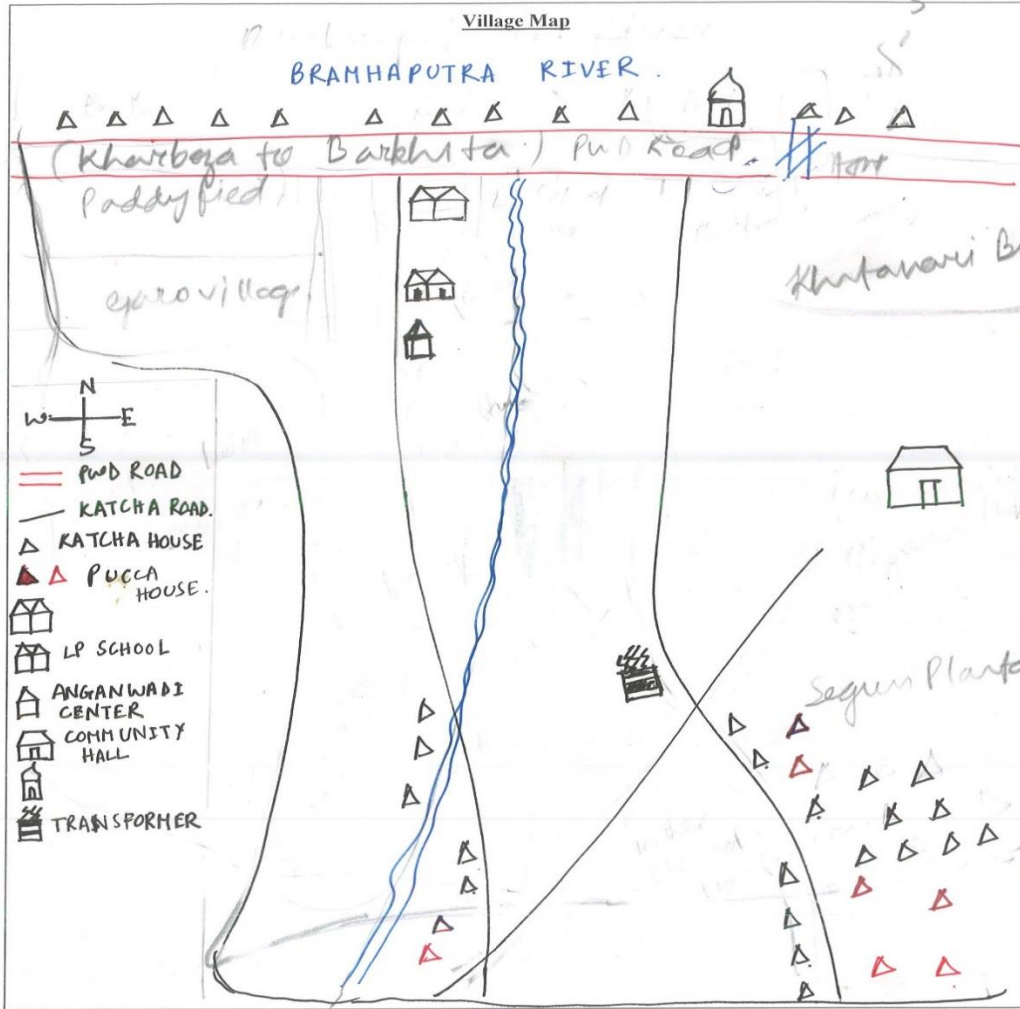 Village Map
BRAMHAPUTRA RIVER.
(Khairboza to Barkhita) PWD Road.
Paddy fied
garo village
Khutanari B
N
W E
S
PWD ROAD
KATCHA ROAD.
KATCHA HOUSE
PUCCA
HOUSE.
LP SCHOOL
ANGANWADI
CENTER
COMMUNITY
HALL
TRANSFORMER
Segun Planta